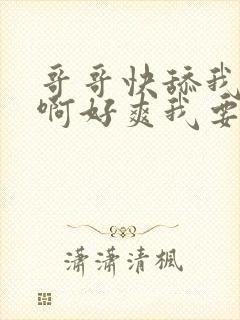 哥哥快舔我
啊好爽我要
潇潇清枫